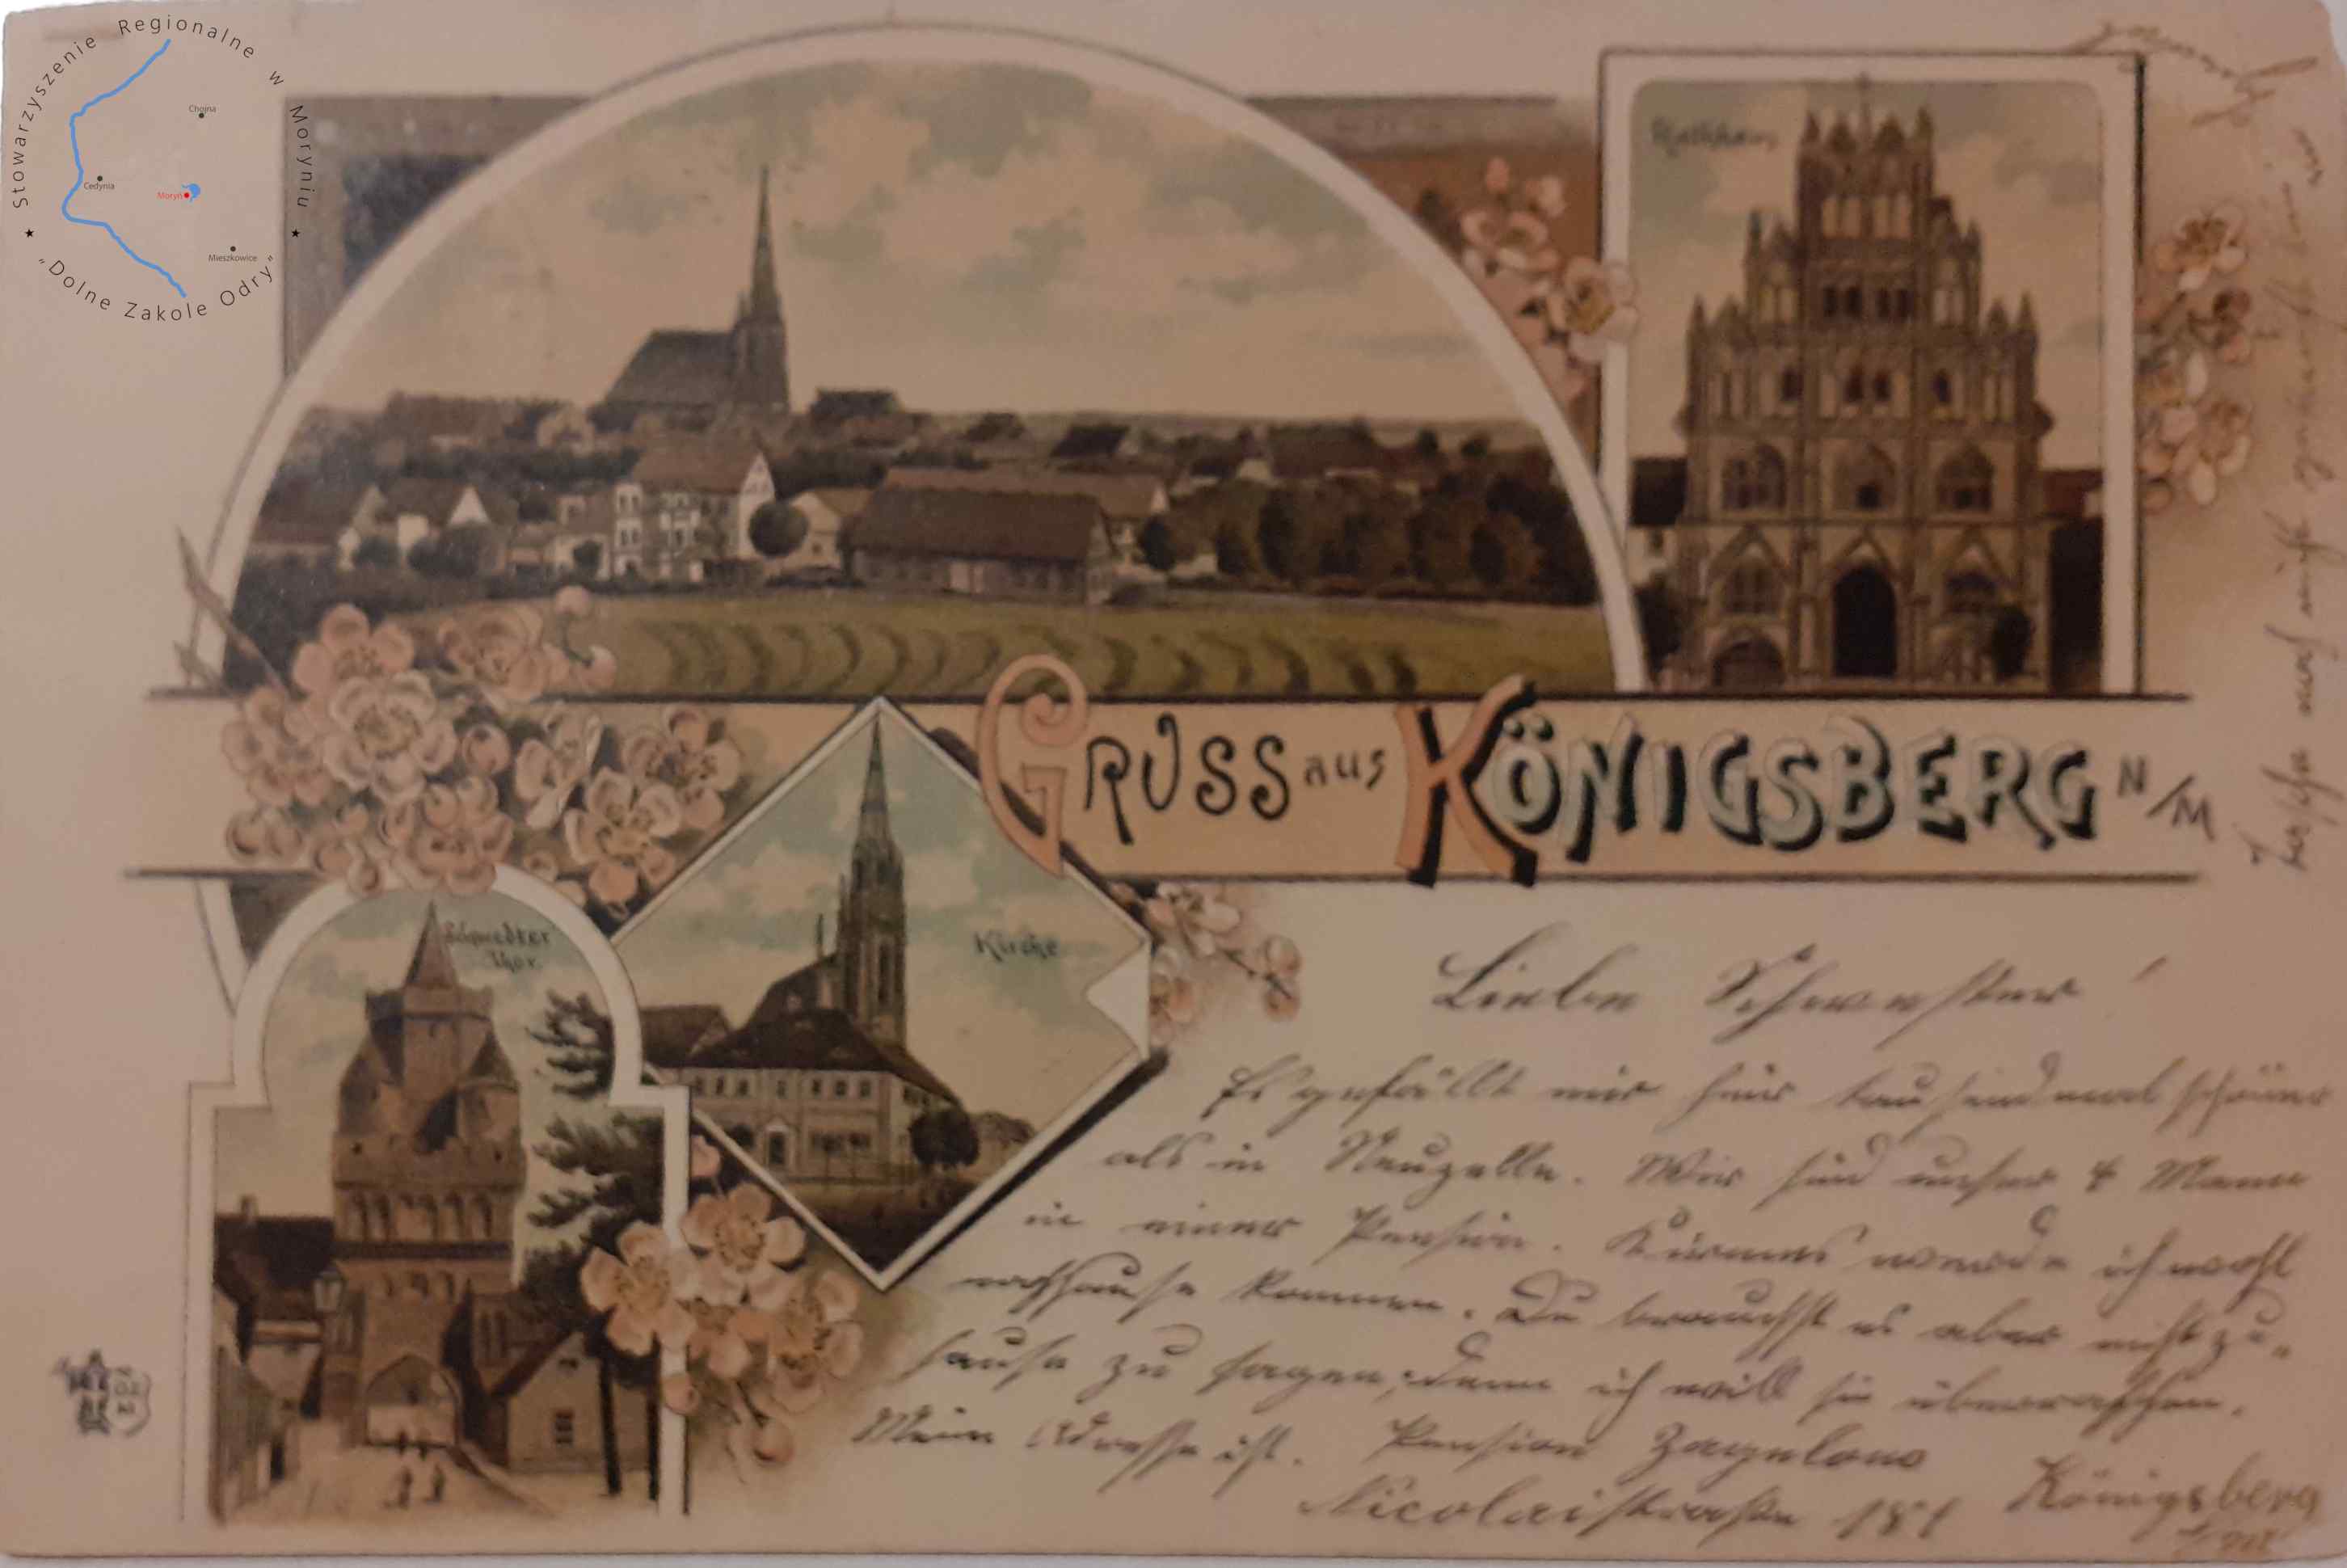 Stowarzyszenie Regionalne w Moryniu
"Dolne Zakole Odry"
Chojna
Cedynia
Moryń
Mieszkowice
Rathhaus
GRUSS aus KÖNIGSBERG N/M
Schwedter
Thor.
Kirche
Liebe Schwester!
Es gefällt mir hier tausendmal schöner
als in Neuzelle. Wir sind unser 4 Mann
in einer Pension. werde ich wohl
nachhause kommen. Du brauchst es aber nicht zu-
hause zu sagen, denn ich will sie überraschen.
Meine Adresse ist. Pension
Nicolaistraße Königsberg